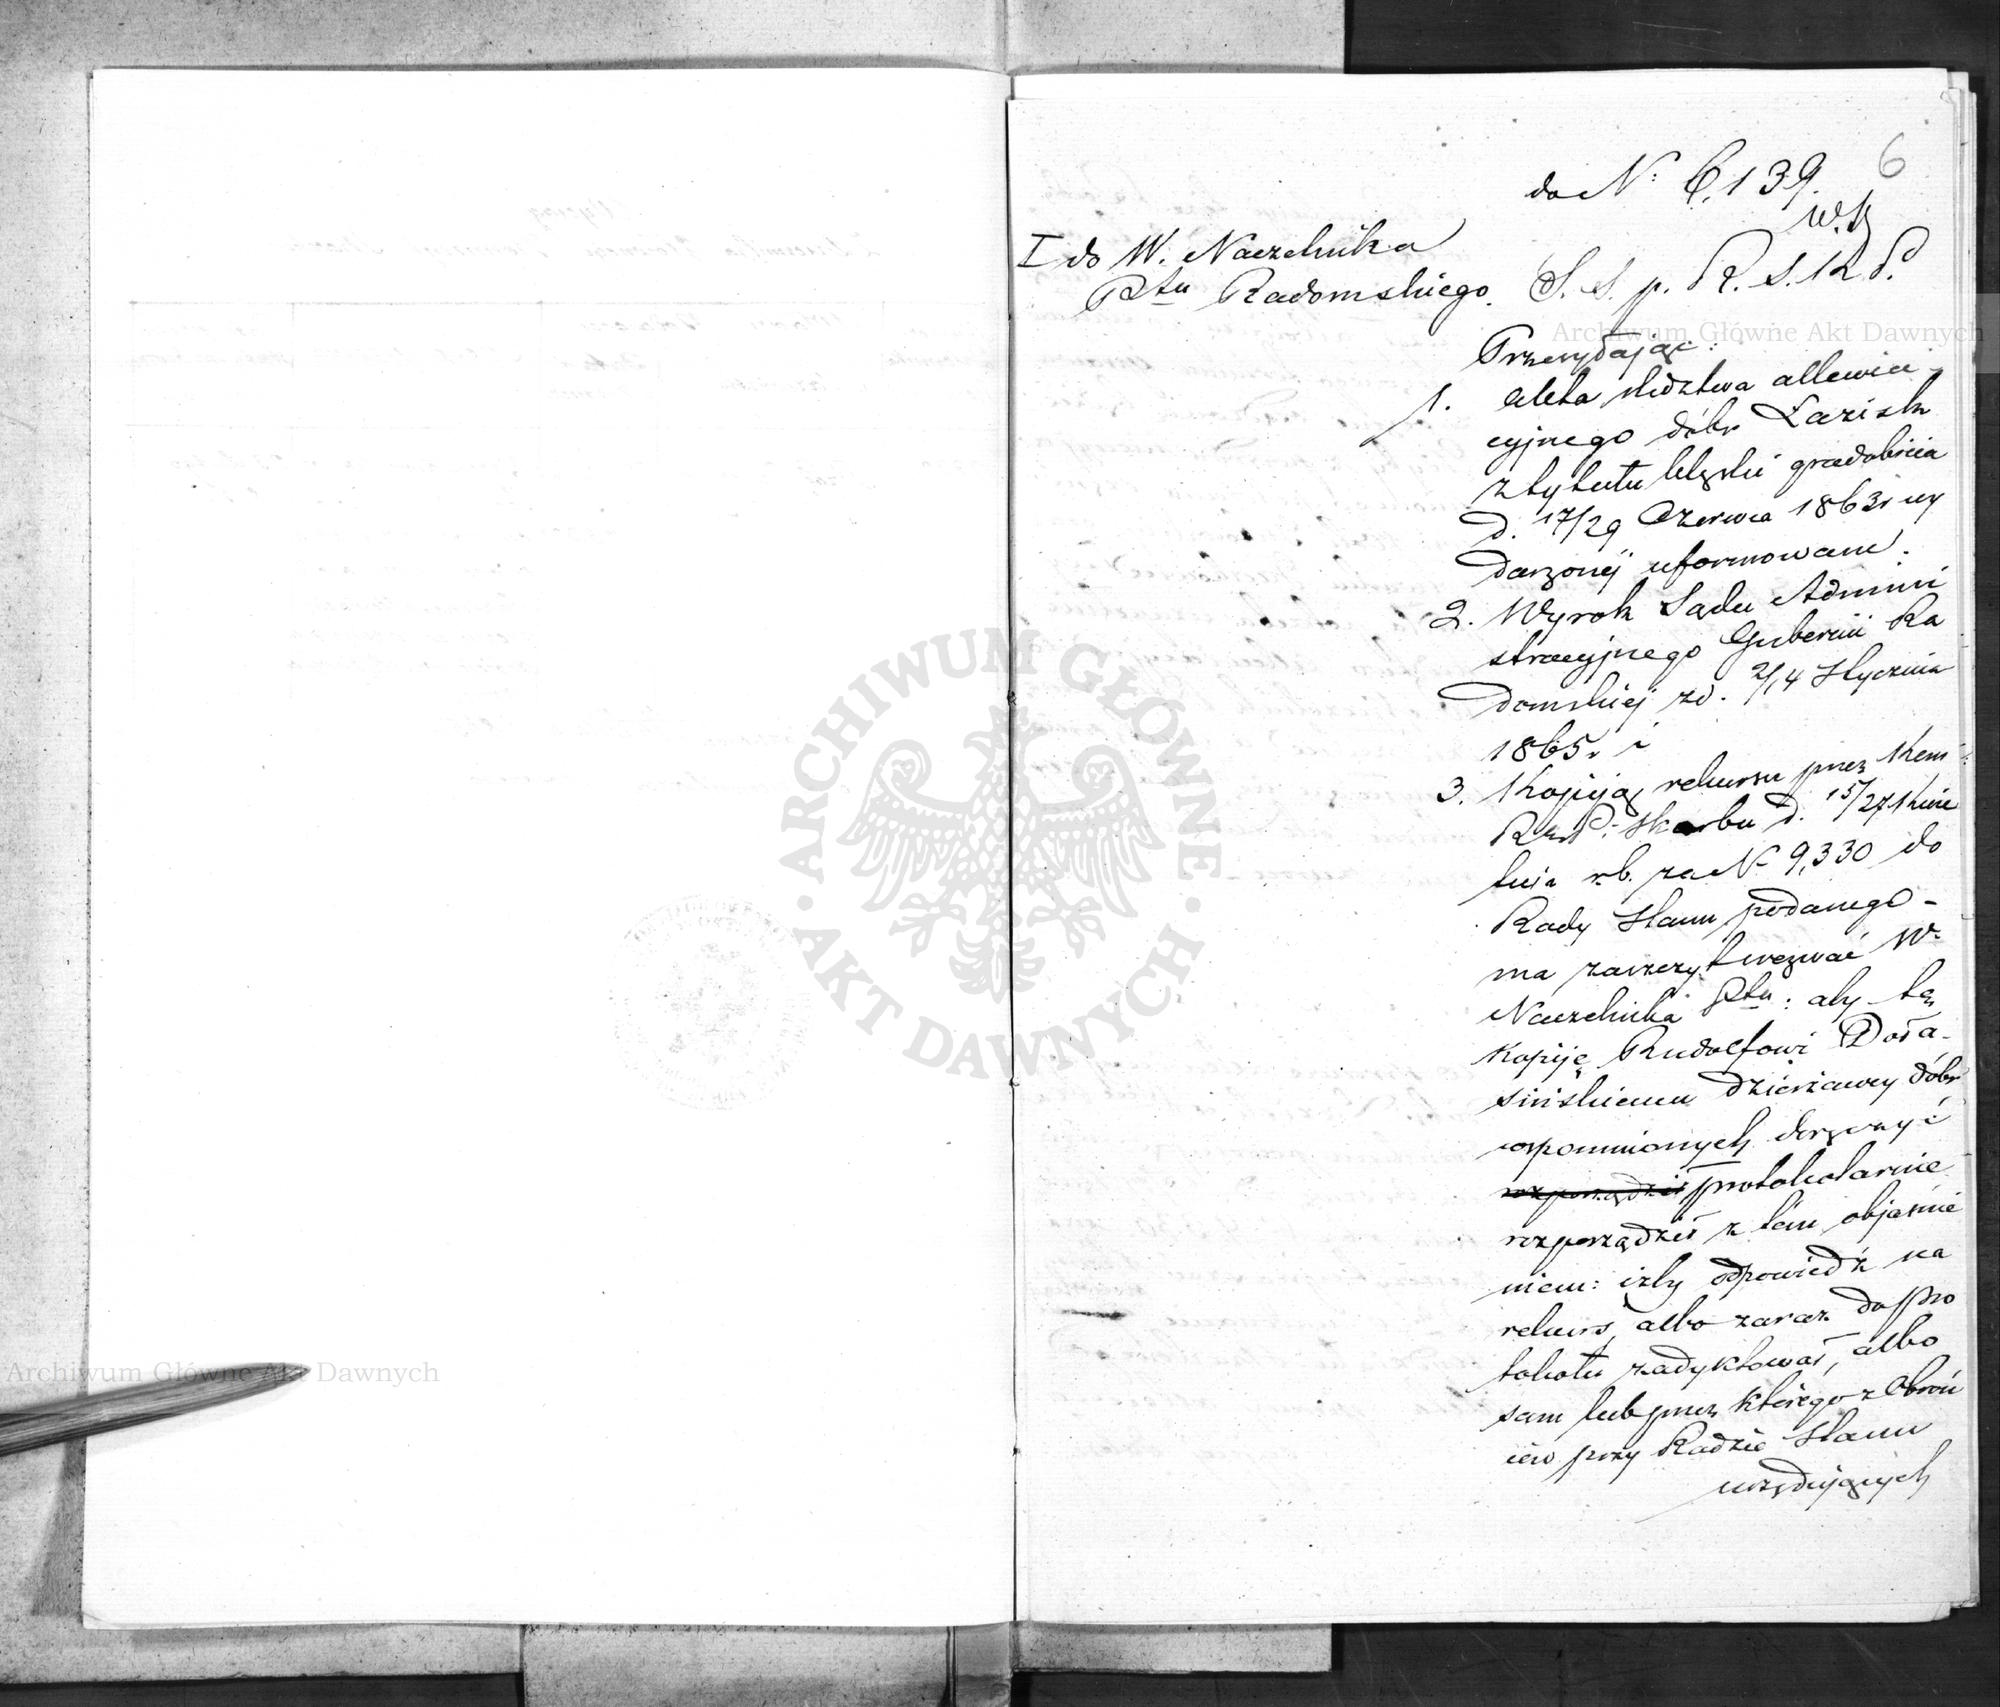 6
do N: 6,139.
I do W. Naczelnika
Ptu Radomskiego.
S. S. p. R. S. K. P.
Przesyłając:
1. Akta śledztwa allewia-
cyjnego dóbr Łazisk
z tytułu klęski gradobicia
d. 17/29 Czerwca 1863r wy
darzonéj uformowane.
2. Wyrok Sądu Admini
stracyjnego Gubernii Ra
domskiej z d. 2/14 Stycznia
1865r i
3. Kopiją rekursu przez Kom:
R. P. i Skarbu d. 15/27 Kwie
tnia r.b. za N 9,330 do
Rady Stanu podanego -
ma zaszczyt wezwać W.
Naczelnika Ptu: aby tę
kopiję Rudolfowi Dosa-
sińskiemu dzierżawcy dóbr
wspomnionych doręczyć
rozporządził protokolarnie
rozporządził z tém objaśnie
niem: iżby odpowiedź na
rekurs, albo zaraz do pro
tokołu zadyktował, albo
sam lub przez którego z Obroń
ców przy Radzie Stanu
urzędujących
ARCHIWUM GŁÓWNE · AKT DAWNYCH ·
Archiwum Główne Akt Dawnych
Archiwum Główne Akt Dawnych